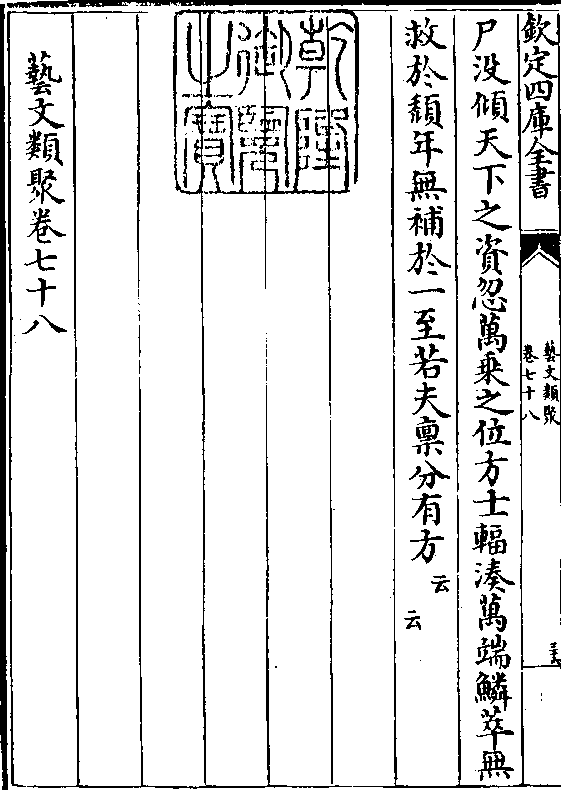 欽定四庫全書
藝文類聚
卷七十八
尸没傾天下之資忽萬乗之位方士輻湊萬端鱗萃無
救於頽年無補於一至若夫禀分有方云
云
乾隆
御覽
之寶
藝文類聚卷七十八